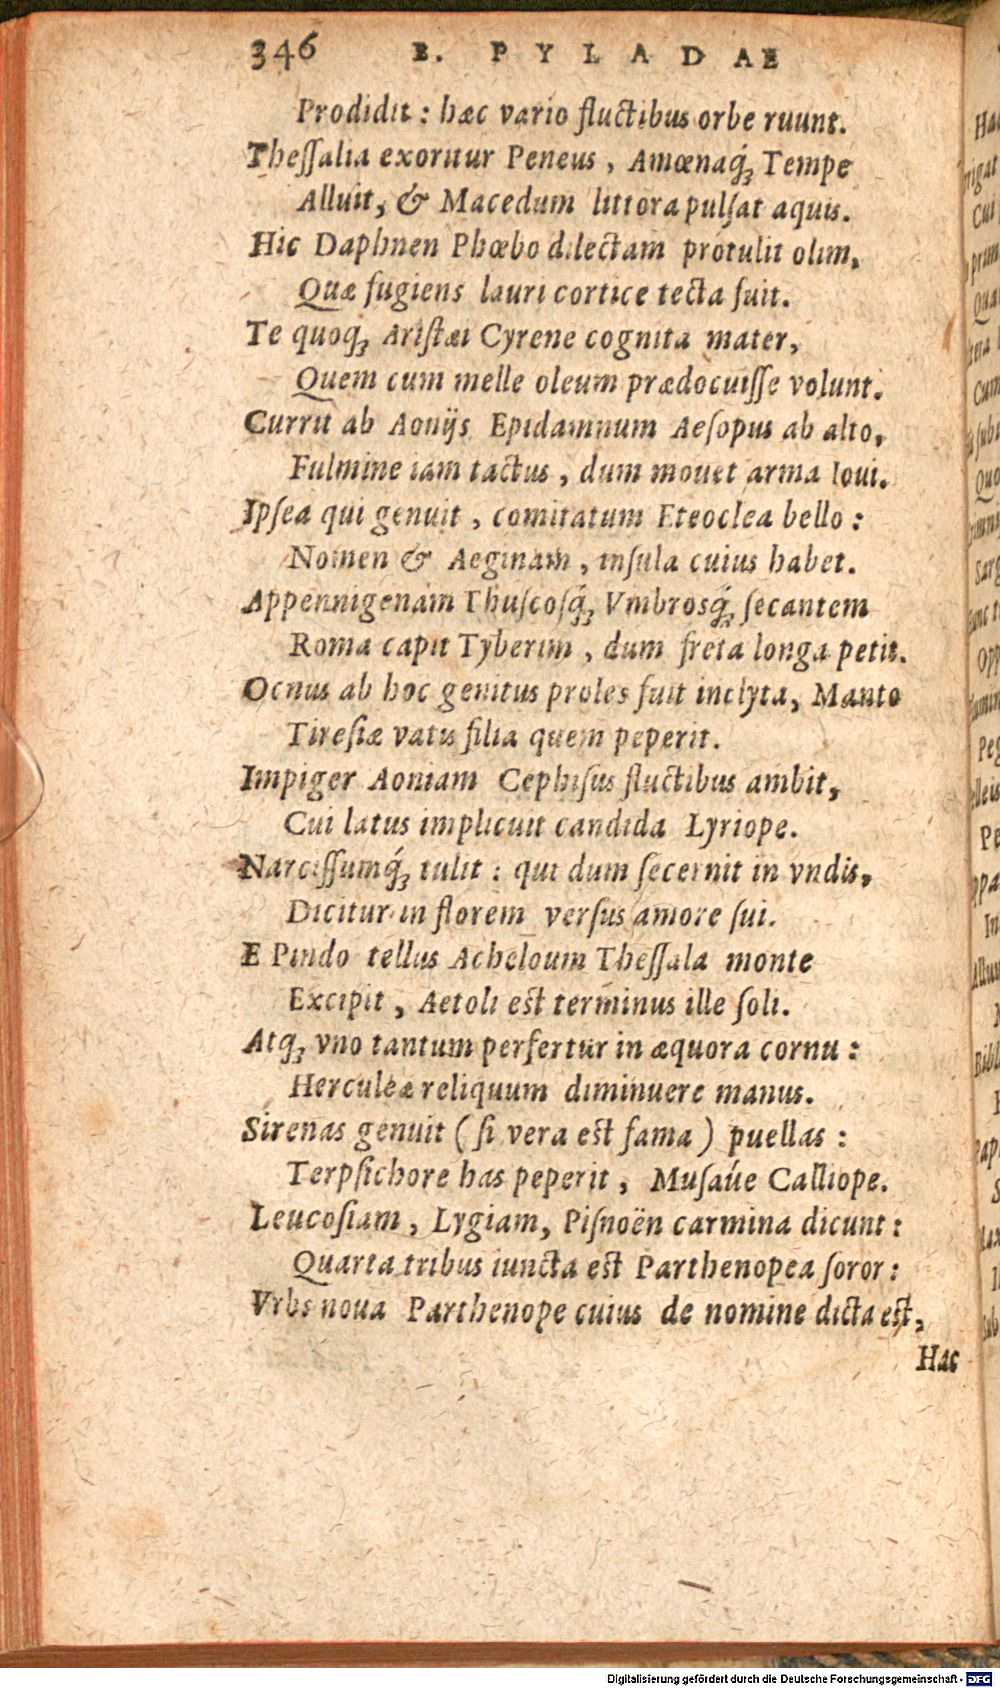 346 E. PYLADAE
Prodidit : hæc vario fluctibus orbe ruunt.
Theſſalia exoritur Peneus , Amœnaq́ꝫ Tempe
Alluit, & Macedum littora pulſat aquis.
Hic Daphnen Phœbo dilectam protulit olim,
Quæ fugiens lauri cortice tecta fuit.
Te quoqꝫ Ariſtæi Cyrene cognita mater,
Quem cum melle oleum prædocuiſſe volunt.
Currit ab Aonijs Epidamnum Aeſopus ab alto,
Fulmine iam tactus , dum mouet arma Ioui.
Ipſea qui genuit , comitatum Eteoclea bello :
Nomen & Aeginam , inſula cuius habet.
Appennigenam Thuſcoſq́ꝫ Vmbroſq́ꝫ ſecantem
Roma capit Tyberim , dum freta longa petit.
Ocnus ab hoc genitus proles fuit inclyta, Manto
Tireſiæ vatis filia quem peperit.
Impiger Aoniam Cephiſus fluctibus ambit,
Cui latus implicuit candida Lyriope.
Narciſſumq́ꝫ tulit : qui dum ſecernit in vndis,
Dicitur in florem verſus amore ſui.
E Pindo tellus Acheloum Theſſala monte
Excipit , Aetoli eſt terminus ille ſoli.
Atqꝫ vno tantum perfertur in æquora cornu :
Herculeæ reliquum diminuere manus.
Sirenas genuit ( ſi vera eſt fama ) puellas :
Terpſichore has peperit , Muſaúe Calliope.
Leucoſiam , Lygiam, Piſnoën carmina dicunt :
Quarta tribus iuncta eſt Parthenopea ſoror :
Vrbs noua Parthenope cuius de nomine dicta eſt,
Hac
Digitalisierung gefördert durch die Deutsche Forschungsgemeinschaft - DFG